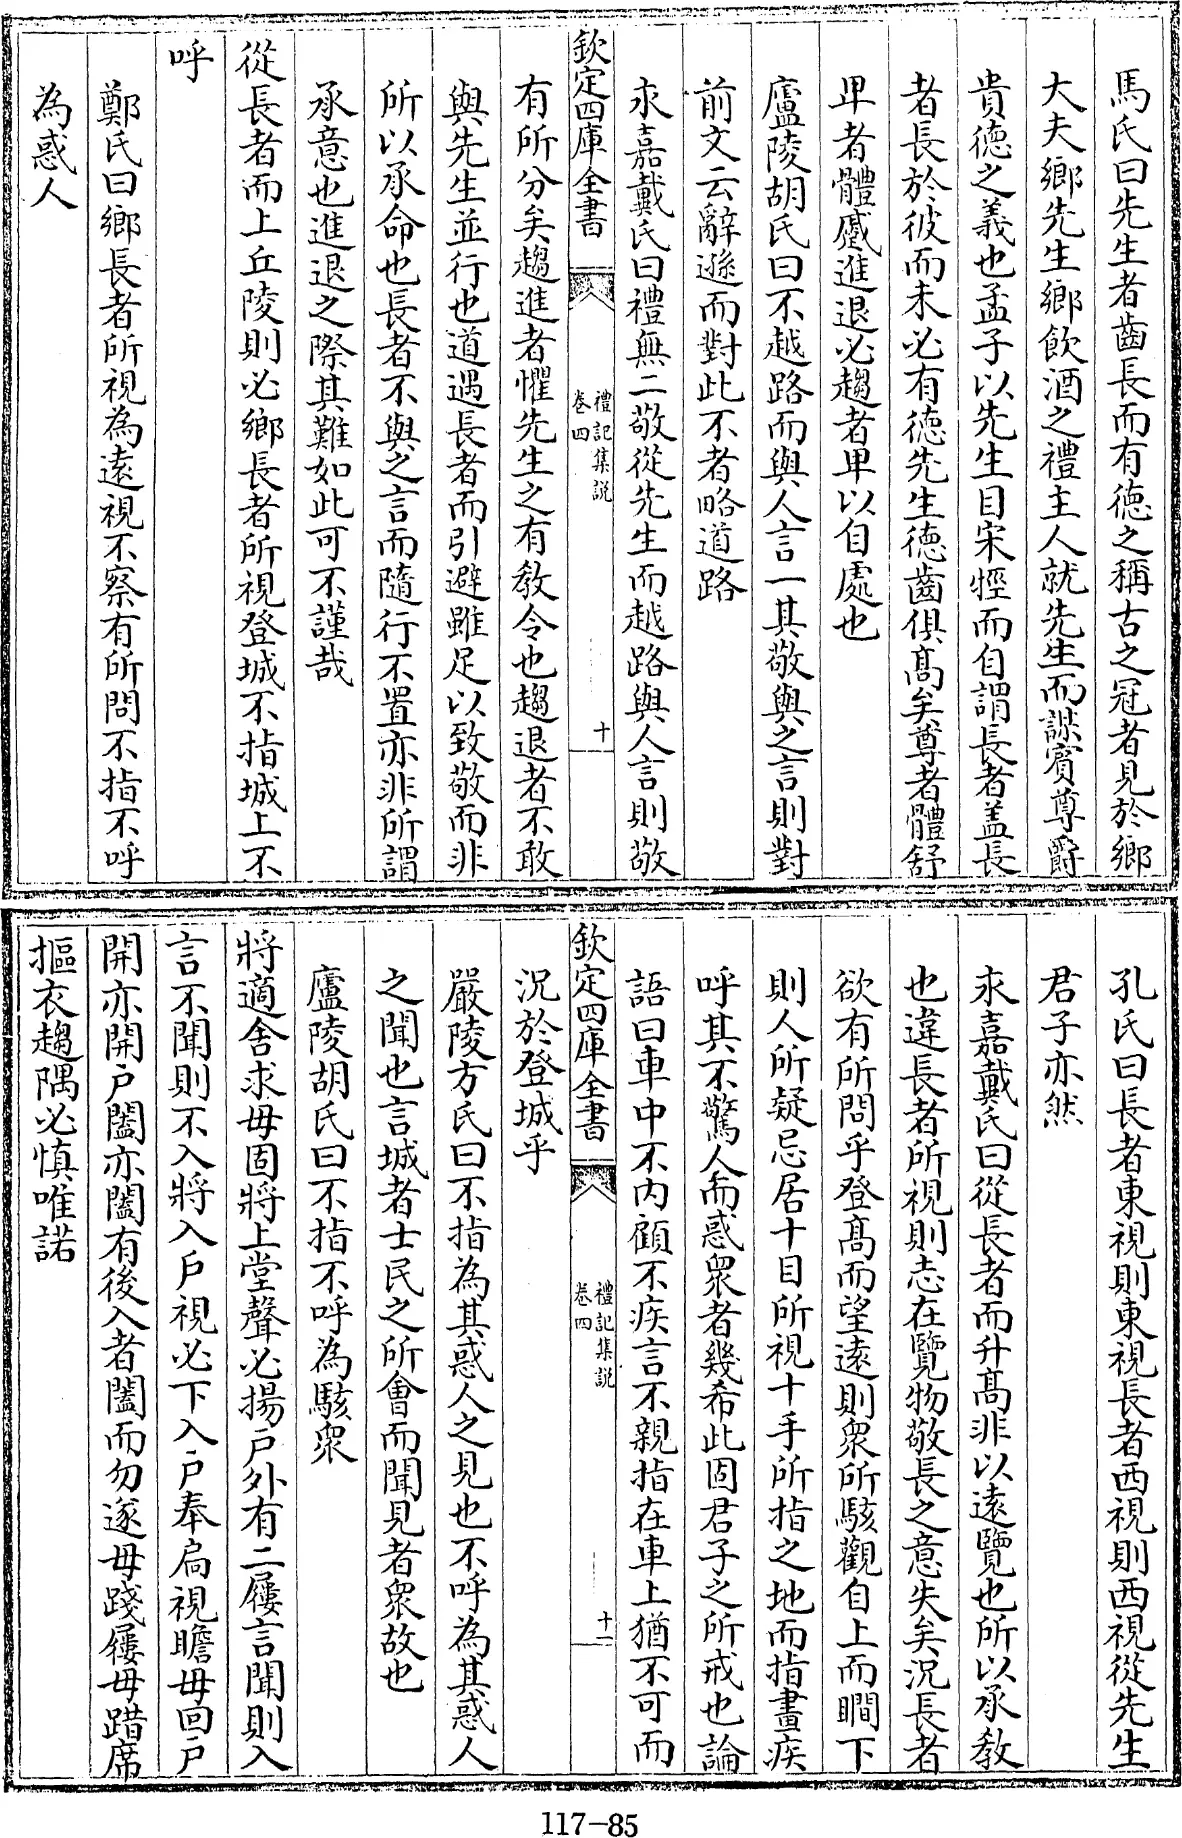 馬氏曰先生者齒長而有德之稱古之冠者見於鄉
大夫鄉先生鄉飲酒之禮主人就先生而謀賓尊爵
貴德之義也孟子以先生目宋牼而自謂長者盖長
者長於彼而未必有德先生德齒俱髙矣尊者體舒
卑者體蹙進退必趨者卑以自處也
廬陵胡氏曰不越路而與人言一其敬與之言則對
前文云辭遜而對此不者略道路
永嘉戴氏曰禮無二敬從先生而越路與人言則敬
欽定四庫全書
禮記集説
卷四
十
有所分矣趨進者懼先生之有教令也趨退者不敢
與先生並行也道遇長者而引避雖足以致敬而非
所以承命也長者不與之言而隨行不置亦非所謂
承意也進退之際其難如此可不謹哉
從長者而上丘陵則必鄉長者所視登城不指城上不
呼
鄭氏曰鄉長者所視為逺視不察有所問不指不呼
為惑人
孔氏曰長者東視則東視長者西視則西視從先生
君子亦然
永嘉戴氏曰從長者而升髙非以逺覽也所以承教
也違長者所視則志在覽物敬長之意失矣況長者
欲有所問乎登髙而望逺則衆所駭觀自上而瞷下
則人所疑忌居十目所視十手所指之地而指畫疾
呼其不驚人而惑衆者幾希此固君子之所戒也論
語曰車中不内顧不疾言不親指在車上猶不可而
欽定四庫全書
禮記集説
卷四
十一
況於登城乎
嚴陵方氏曰不指為其惑人之見也不呼為其惑人
之聞也言城者士民之所會而聞見者衆故也
廬陵胡氏曰不指不呼為駭衆
將適舍求毋固將上堂聲必揚户外有二屨言聞則入
言不聞則不入將入户視必下入户奉扃視瞻毋回户
開亦開户闔亦闔有後入者闔而勿遂毋踐屨毋踖席
摳衣趨隅必慎唯諾
117-85